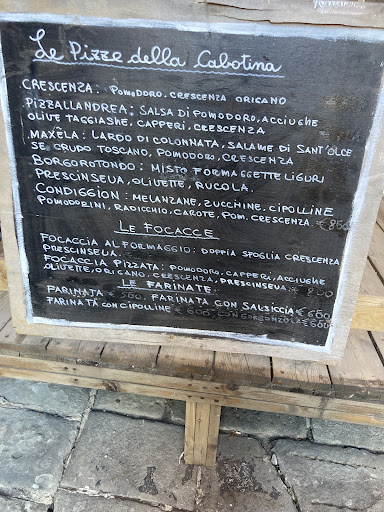 Le Pizze della Cabotina
CRESCENZA: POMODORO, CRESCENZA ORIGANO
PIZZALLANDREA: SALSA DI POMODORO, ACCIUGHE
OLIVE TAGGIASHE, CAPPERI, CRESCENZA
MAXÈLA: LARDO DI COLONNATA, SALAME DI SANT'OLCE
SE CRUDO TOSCANO, POMODORO, CRESCENZA
BORGOROTONDO: MISTO FORMAGGETTE LIGURI
PRESCINSEUA, OLIVETTE, RUCOLA.
CONDIGGION: MELANZANE, ZUCCHINE, CIPOLLINE
POMODORINI, RADICCHIO, CAROTE, POM. CRESCENZA. € 850
LE FOCACCE
FOCACCIA AL FORMAGGIO: DOPPIA SFOGLIA CRESCENZA
PRESCINSEUA.
FOCACCIA PIZZATA: POMODORO, CAPPERI, ACCIUGHE
OLIVETTE, ORIGANO, CRESCENZA, PRESCINSEUA € 800
LE FARINATE
FARINATA € 500, FARINATA CON SALSICCIA € 660
FARINATA CON CIPOLLINE € 600, CON GORGONZOLA € 660